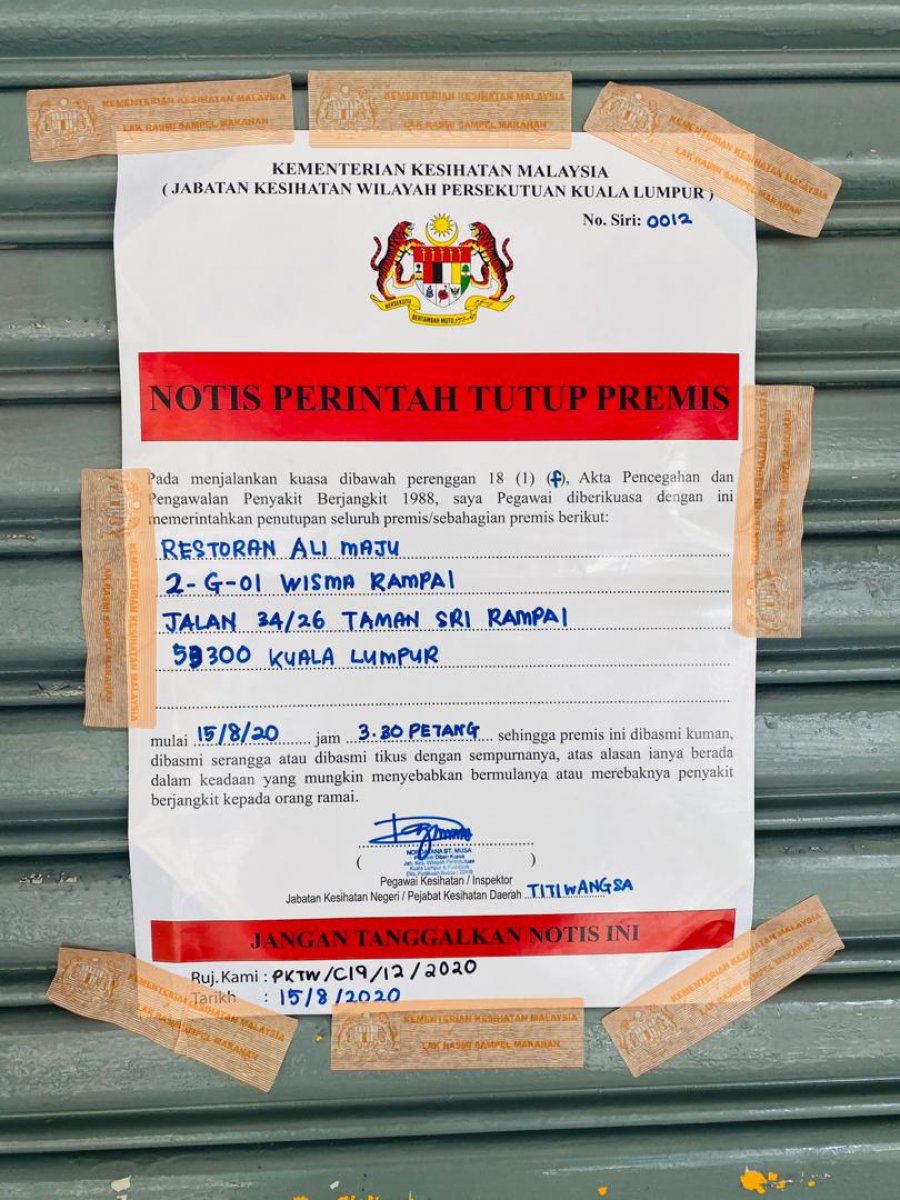 KEMENTERIAN KESIHATAN MALAYSIA
LAK RASMI SAMPEL MAKANAN
KEMENTERIAN KESIHATAN MALAYSIA
LAK RASMI SAMPEL MAKANAN
KEMENTERIAN KESIHATAN MALAYSIA
LAK RASMI SAMPEL MAKANAN
KEMENTERIAN KESIHATAN MALAYSIA
( JABATAN KESIHATAN WILAYAH PERSEKUTUAN KUALA LUMPUR )
No. Siri: 0012
BERSEKUTU BERTAMBAH MUTU
NOTIS PERINTAH TUTUP PREMIS
Pada menjalankan kuasa dibawah perenggan 18 (1) (f), Akta Pencegahan dan
Pengawalan Penyakit Berjangkit 1988, saya Pegawai diberikuasa dengan ini
memerintahkan penutupan seluruh premis/sebahagian premis berikut:
RESTORAN ALI MAJU
2-G-01 WISMA RAMPAI
JALAN 34/26 TAMAN SRI RAMPAI
53300 KUALA LUMPUR
mulai 15/8/20 jam 3.30 PETANG sehingga premis ini dibasmi kuman,
dibasmi serangga atau dibasmi tikus dengan sempurnanya, atas alasan ianya berada
dalam keadaan yang mungkin menyebabkan bermulanya atau merebaknya penyakit
berjangkit kepada orang ramai.
( )
Pegawai Kesihatan / Inspektor
Jabatan Kesihatan Negeri / Pejabat Kesihatan Daerah TITIWANGSA
JANGAN TANGGALKAN NOTIS INI
Ruj. Kami : PKTW/C19/12/2020
Tarikh : 15/8/2020
KEMENTERIAN KESIHATAN MALAYSIA
LAK RASMI SAMPEL MAKANAN
KEMENTERIAN KESIHATAN MALAYSIA
LAK RASMI SAMPEL MAKANAN
KEMENTERIAN KESIHATAN MALAYSIA
LAK RASMI SAMPEL MAKANAN